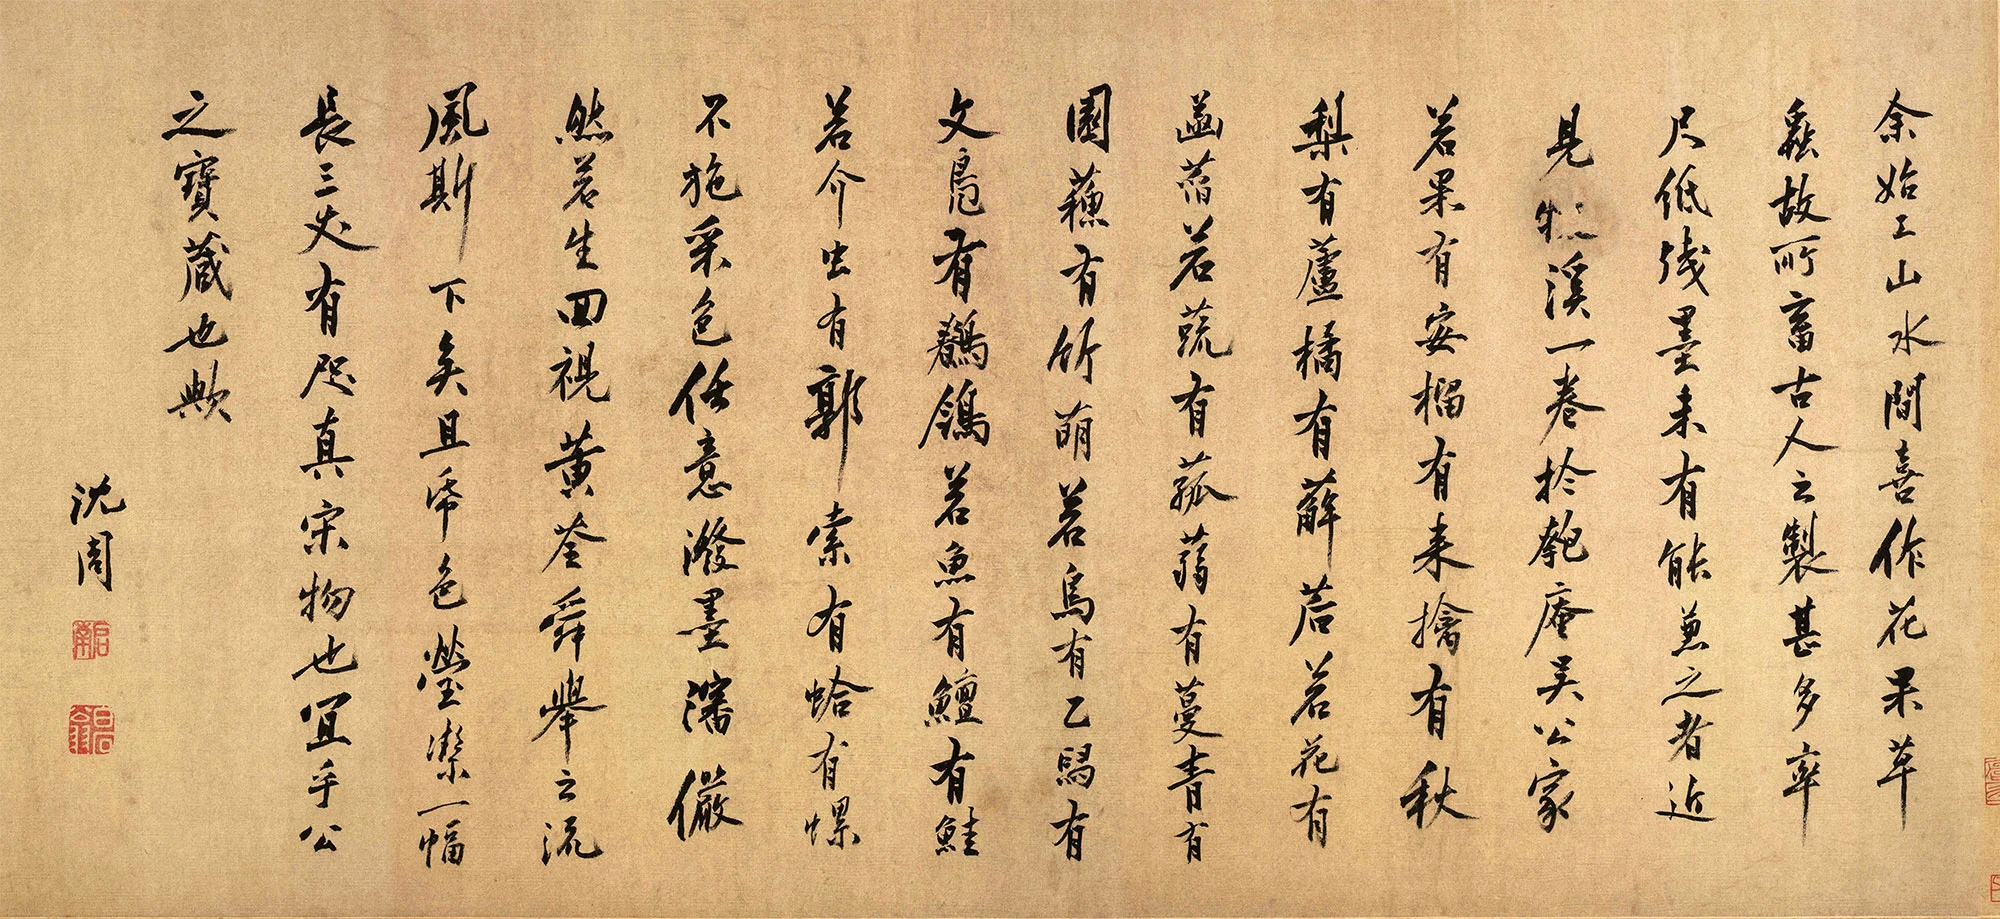 余始工山水間喜作花果草
蟲故所畜古人之製甚多率
尺低殘墨未有能兼之者近
見牧溪一卷於匏庵吳公家
若果有安榴有來擒有秋
梨有蘆橘有薢茩若花有
菡萏若蔬有菰蒻有蔓青有
園蘓有竹萌若鳥有乙舄有
文鳧有鶺鴒若魚有鱣有鮭
若介虫有郭索有蛤有螺
不施采色任意潑墨瀋儼
然若生回視黃荃舜舉之流
風斯下矣且帋色瑩潔一幅
長三丈有咫真宋物也宜乎公
之寶蔵也歟
沈周
啟南